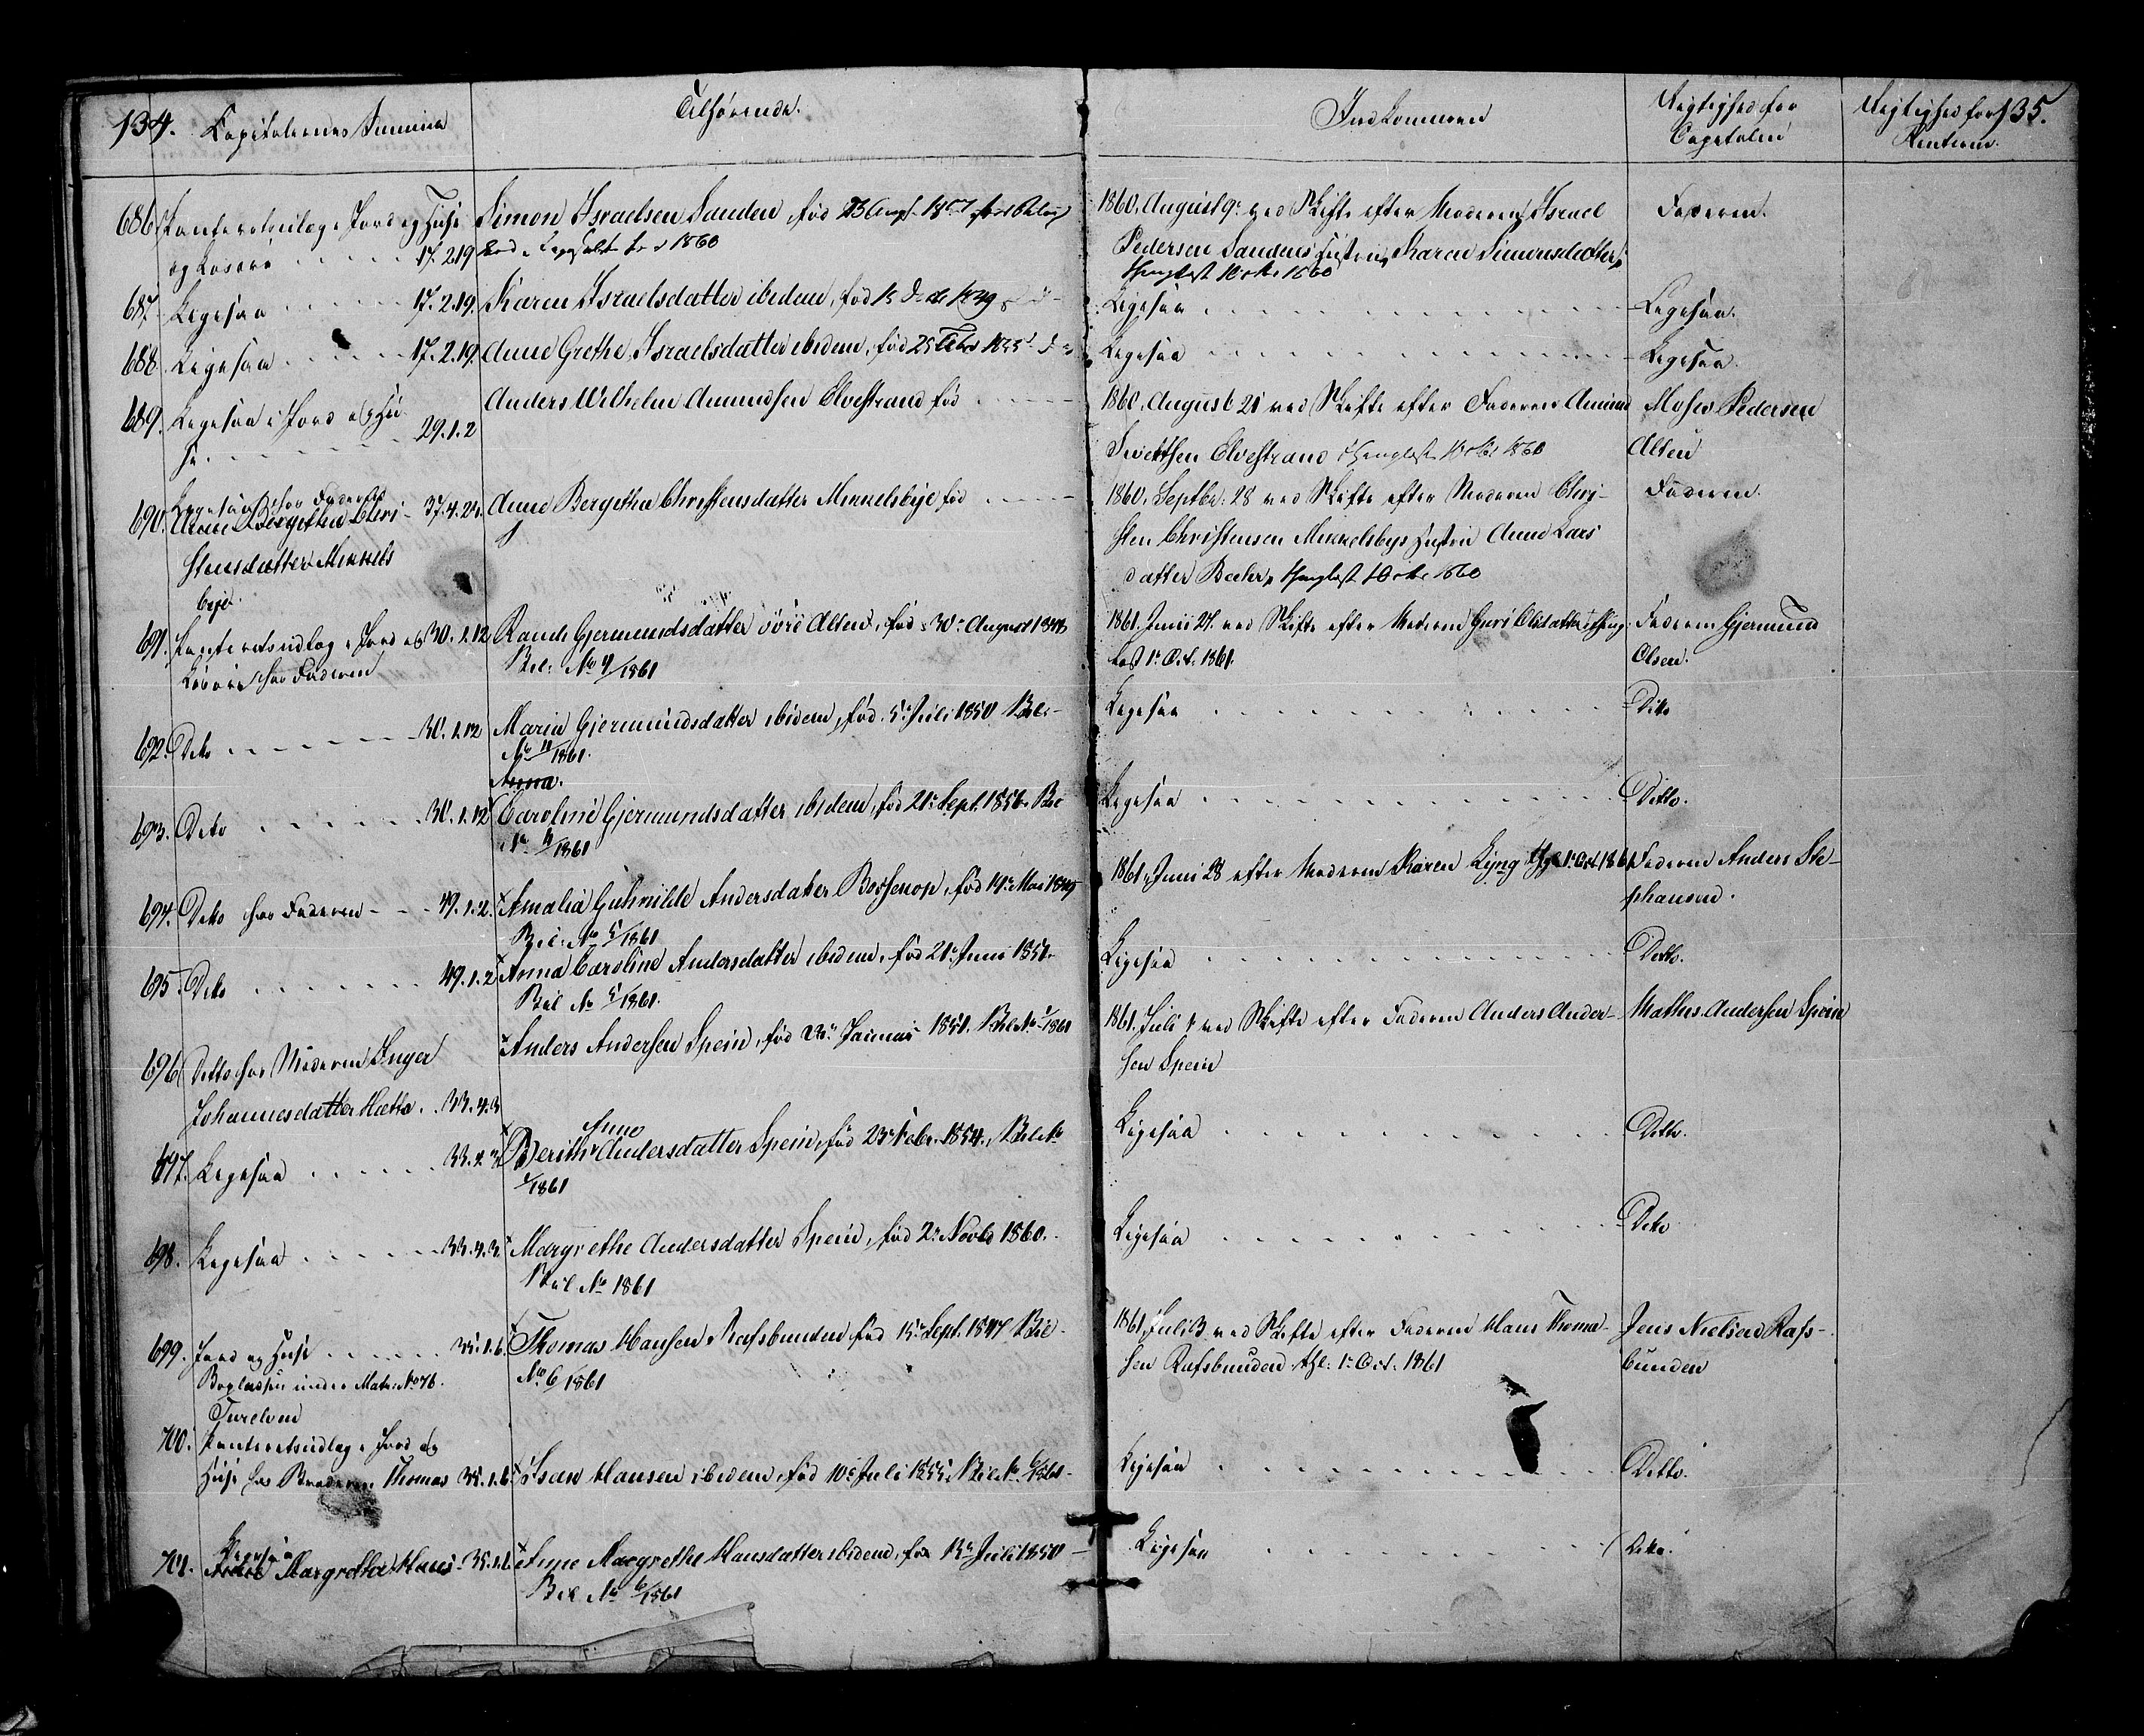 134. Capitalernes Summa
Tilhørende.
Indkommen
Rigtighed for
Capitalen
Rigtighed for 135.
Renterne.
686. Panteretsudlæg i Jord og Huse
og Løsøre . . . . . 17.2.19
Simon Israelsen Sanden, fød 23 Aug
1860
1860, August 9. ved Skifte efter Moderen, Israel
Pedersen Sandens Hustru, Karen Simonsdatter,
thinglæst 10 1860
Faderen.
687. Ligesaa . . . . 17.2.19.
Karen Israelsdatter ibidem, fød
Ligesaa . . . . . .
Ligesaa.
688. Ligesaa . . . . 17.2.19.
Anne Grethe Israelsdatter ibidem, fød 25 Febr
Ligesaa . . . . . .
Ligesaa.
689. Ligesaa i Jord og Hu-
se . . . . . . 29.1.2
Anders Wilhelm Amundsen Elvestrand fød . . .
1860, August 21 ved Skifte efter Faderen Amund
Elvestrand thinglæst 1860
Moses Pedersen
Alten
690. Ligesaa hos Faderen
Anne Bergitha Chri- 37.4.21.
stensdatter Mikkels
bye.
Anne Bergitha Christensdatter Mikkelsbye fød . . .
1860, Septbr. 28 ved Skifte efter Moderen Chri-
sten Christensen Mikkelsbys Hustru Anne Lars
datter Bæhr, thinglæst 10 1860
Faderen.
691. Panteretsudlæg i Jord og 30.1.12
Løsøre hos Faderen
Randi Gjermundsdatter Alten, fød 30. August 1848
Bil: No 4/1861
1861. Junii 27. ved Skifte efter Moderen Guri Olsdatter thing-
læst 1. Oct. 1861.
Faderen Gjermund
Olsen.
692. Ditto . . . . . . 30.1.12
Maria Gjermundsdatter ibidem, fød 5. Juli 1850 Bil.
No 4/1861.
Ligesaa . . . . . .
Ditto
Anna.
693. Ditto . . . . . . 30.1.12
Caroline Gjermundsdatter ibidem, fød 21. Sept. 1856. Bil
No 4/1861
Ligesaa . . . . . .
Ditto.
694. Ditto hos Faderen - - - 49.1.2.
Amalia Andersdatter Bossekop, fød 14. Mai 1849
Bil. No 5/1861.
1861, Juni 28 efter Moderen Karen Lyng thgl 1. Oct. 1861
Faderen Anders Ste-
phansen.
695. Ditto . . . . . . 49.1.2
Anna Caroline Andersdatter ibidem, fød 21. Juni 1851.
Bil No 5/1861.
Ligesaa . . . . . .
Ditto.
696. Ditto hos Moderen Inger
Johannesdatter Hætta . . 33.4.3
Anders Andersen Spein, fød Januar 1851. Bil No /1861
1861. Juli ved Skifte efter Faderen Anders Ander-
sen Spein
Mathis Andersen Spein
697. Ligesaa . . . . . . 33.4.3.
Anne
Berith Andersdatter Spein, fød 23. Febr. 1854. Bil No
/1861
Ligesaa . . . . . .
Ditto.
698. Ligesaa . . . . . . 33.4.3.
Margrethe Andersdatter Spein, fød 2. Novbr 1860.
Bil No 1861
Ligesaa . . . . . .
Ditto
699. Jord og Huse . . . . . . 35.1.6.
Bopladsen under Matr. No 76.
Turelven
Thomas Hansen Rafsbunden fød 15. Sept. 1847 Bil
No 6/1861
1861, Juli 3. ved Skifte efter Faderen Hans Thoma-
sen Rafsbunden thgl: 1. Oct. 1861
Jens Nielsen Rafs-
bunden
700. Panteretsudlæg i Jord og
Huse hos Broderen Thomas 35.1.6.
Isak Hansen ibidem, fød 10. Juli 1855, Bil No 6/1861.
Ligesaa . . . . . .
Ditto.
701. Ligesaa
Margretha Hans- 35.1.6.
Anne Margrethe Hansdatter ibidem, fød 13. Juli 1850
Bil No 6/1861
Ligesaa . . . . . .
Ditto.